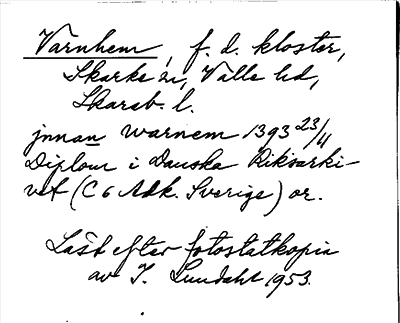 Varnhem, f. d. kloster,
Skarke sn, Valle hd,
Skarab. l.
jnnan warnem 1393 23/11
Diplom i Danska Riksarki-
vet (C 6 Adk. Sverige) or.
Läst efter fotostatkopia
av I. Lundahl 1953.